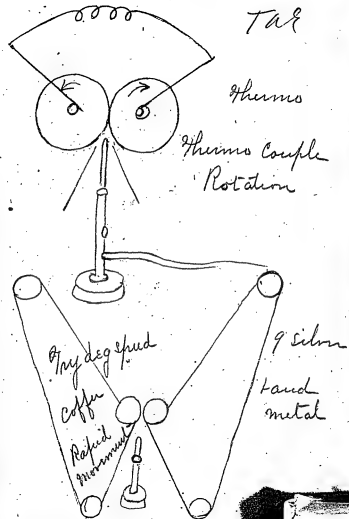 TAE
Thermo
Thermo Couple
Rotation
Try deg speed
Copper
Rapid
Movement
g silver
band
metal